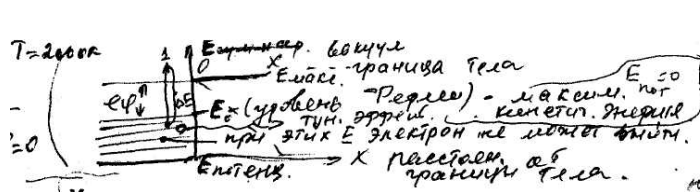 T=2000к 1 E вакуум
0 X Eмакс. граница тела
eφ ΔE E₀ (уровень Ферми) - максим. E пот =0
тун. эффек. кинетич. энергия
=0 при этих E электрон не может выйти.
Eпотенц. X расстоян. от
границы тела.